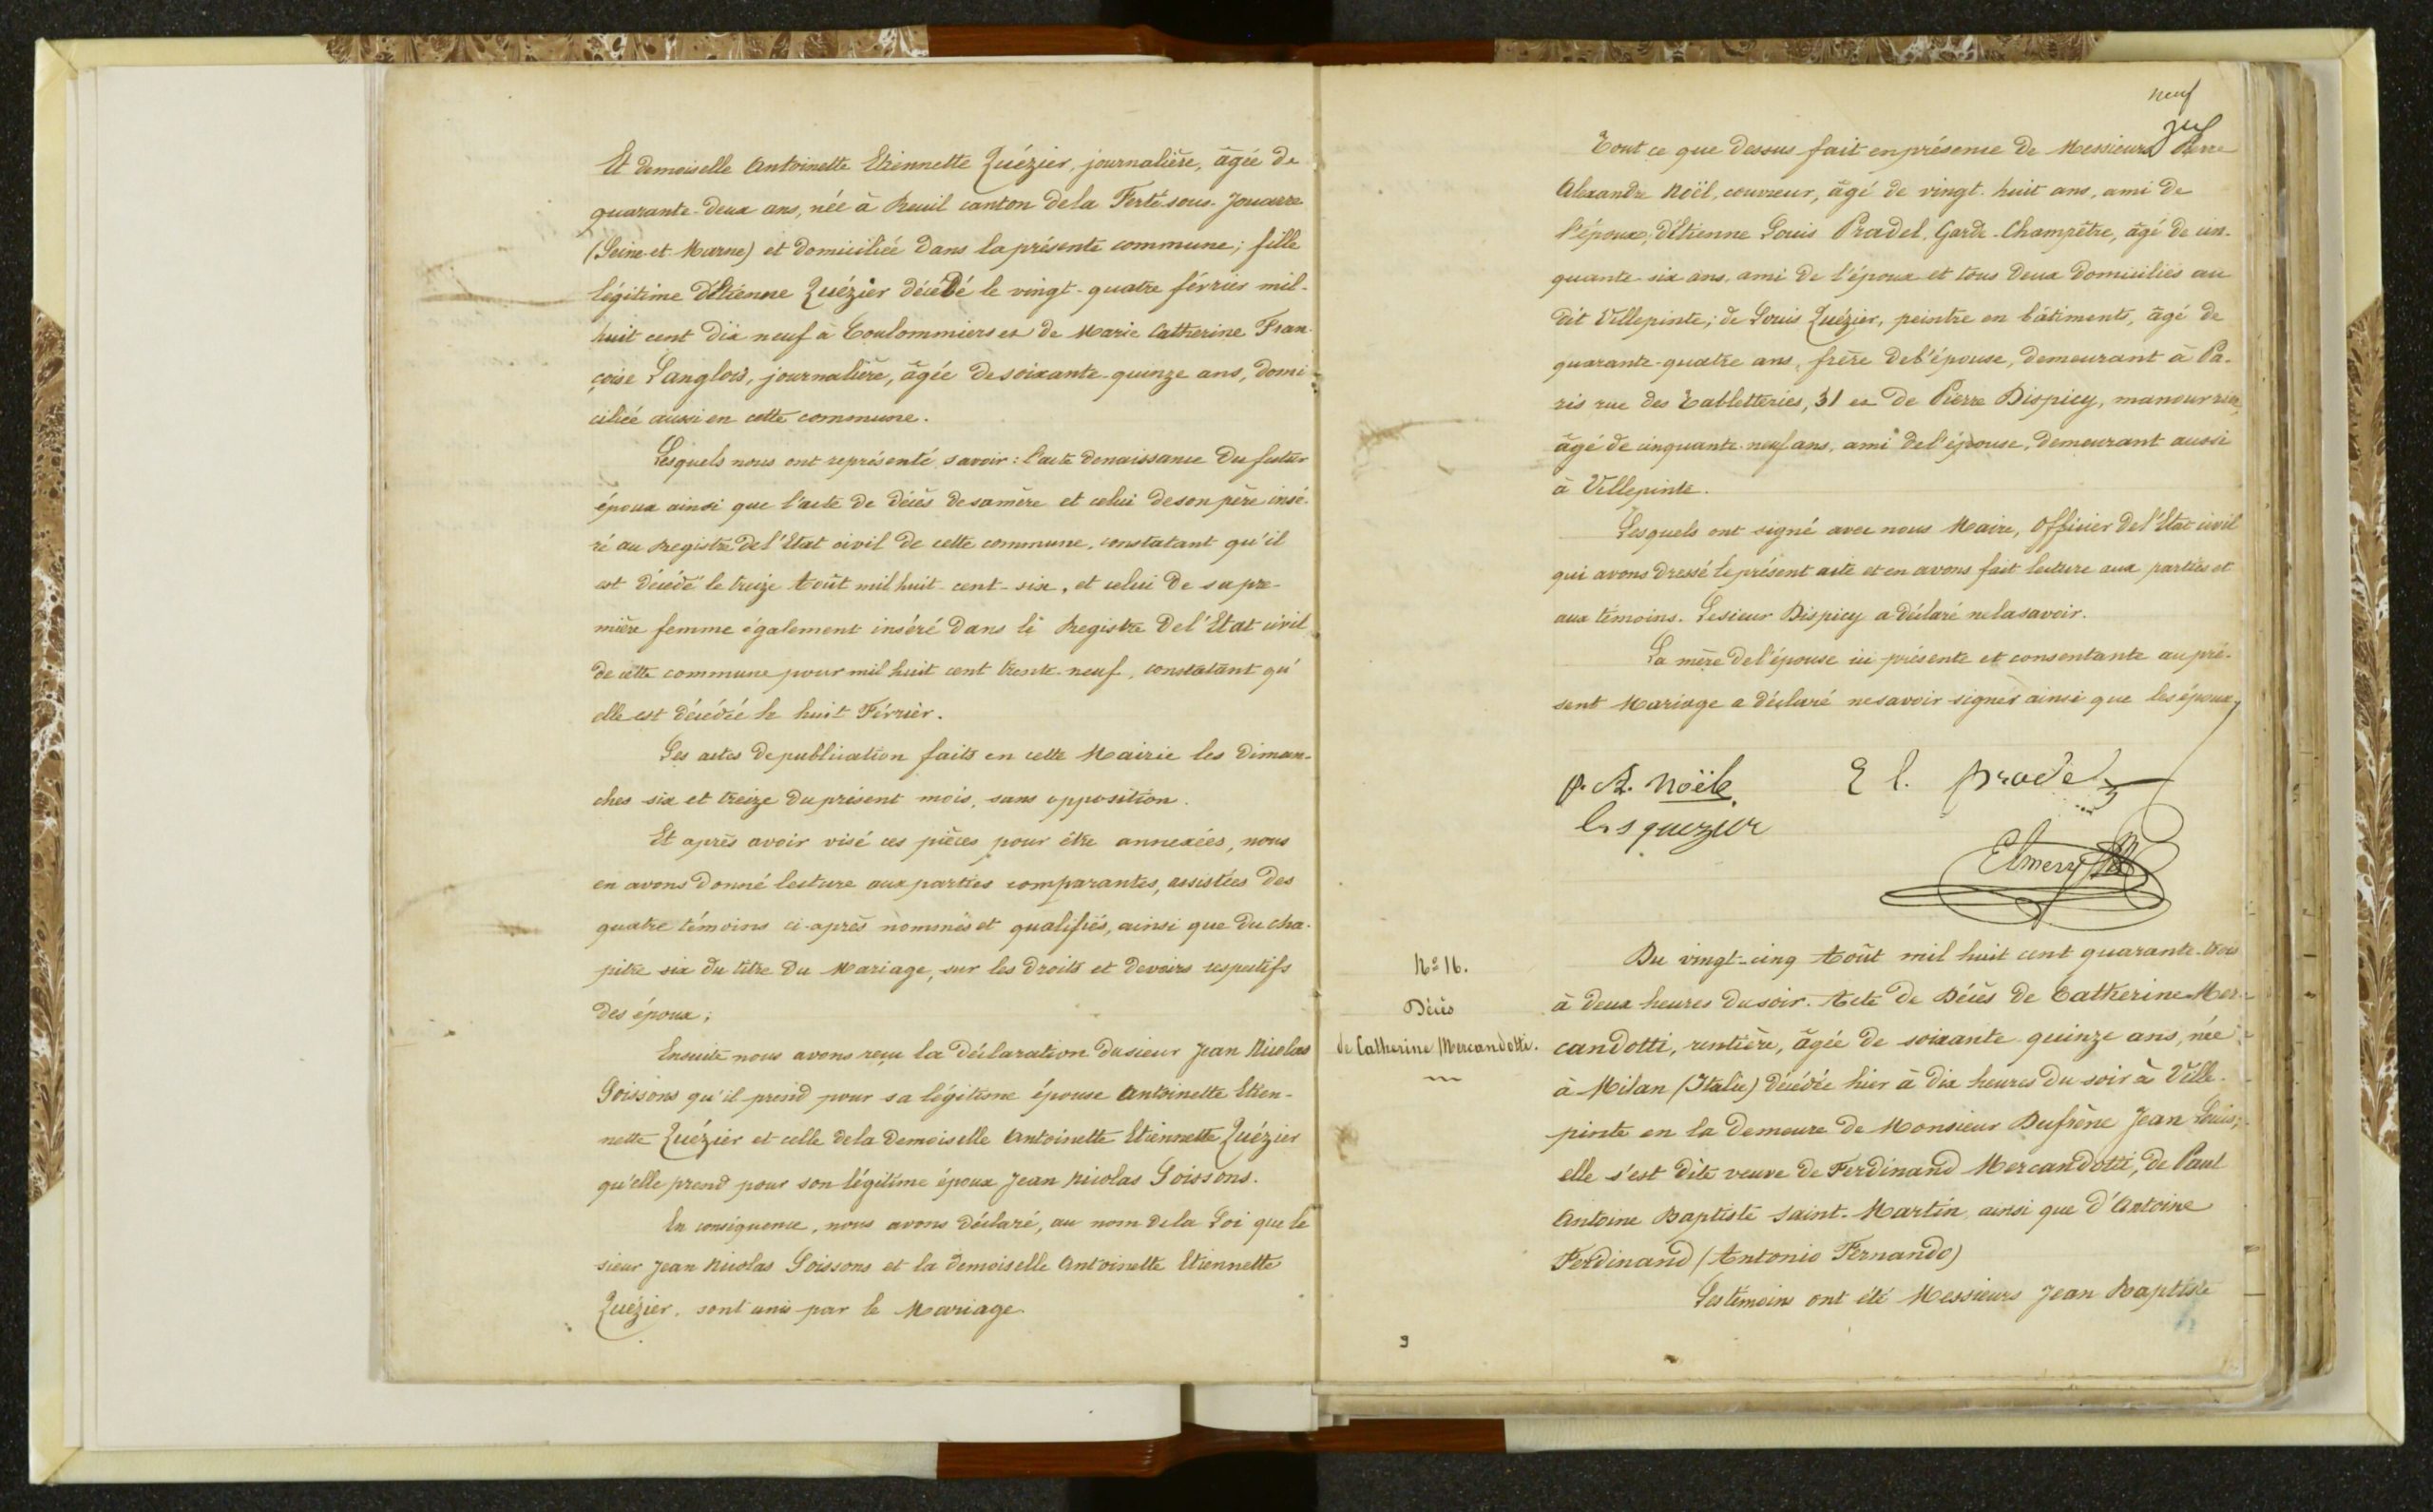 Et demoiselle Antoinette Etiennette Quézier, journalière, âgée de
quarante-deux ans, née à Reuil canton de la Ferté-sous-Jouarre
(Seine-et-Marne) et domiciliée dans la présente commune; fille
légitime d'Etienne Quézier décédé le vingt-quatre février mil-
huit cent dix neuf à Coulommiers et de Marie Catherine Fran-
çoise Langlois, journalière, âgée de soixante-quinze ans, domi-
ciliée aussi en cette commune.
Lesquels nous ont représenté, savoir: l'acte de naissance du futur
époux ainsi que l'acte de décès de sa mère et celui de son père insé-
ré au Registre de l'Etat civil de cette commune, constatant qu'il
est décédé le treize Août mil huit-cent-six, et celui de sa pre-
mière femme également inséré dans le Registre de l'Etat civil
de cette commune pour mil huit cent trente-neuf, constatant qu'
elle est décédée le huit Février.
Les actes de publication faits en cette Mairie les diman-
ches six et treize du présent mois, sans opposition.
Et après avoir visé ces pièces pour être annexées, nous
en avons donné lecture aux parties comparantes, assistées des
quatre témoins ci-après nommés et qualifiés, ainsi que du cha-
pitre six du titre du Mariage, sur les droits et devoirs respectifs
des époux;
Ensuite nous avons reçu la déclaration du sieur Jean Nicolas
Soissons qu'il prend pour sa légitime épouse Antoinette Etien-
nette Quézier et celle de la demoiselle Antoinette Etiennette Quézier
qu'elle prend pour son légitime époux Jean Nicolas Soissons.
En conséquence, nous avons déclaré, au nom de la Loi que le
sieur Jean Nicolas Soissons et la demoiselle Antoinette Etiennette
Quézier, sont unis par le Mariage.
neuf
Tout ce que dessus fait en présence de Messieurs Pierre
Alexandre Noël, couvreur, âgé de vingt-huit ans, ami de
l'époux; d'Etienne Louis Pradel, Garde-Champêtre, âgé de cin-
quante-six ans, ami de l'époux et tous deux domiciliés au
dit Villepinte; de Louis Quézier, peintre en bâtiments, âgé de
quarante-quatre ans, frère de l'épouse, demeurant à Pa-
ris rue des Tabletteries, 31 et de Pierre Dispicy, manouvrier,
âgé de cinquante-neuf ans, ami de l'épouse, demeurant aussi
à Villepinte.
Lesquels ont signé avec nous Maire, Officier de l'Etat civil
qui avons dressé le présent acte et en avons fait lecture aux parties et
aux témoins. Le sieur Dispicy a déclaré ne la savoir.
La mère de l'épouse ici présente et consentante au pré-
sent Mariage a déclaré ne savoir signer ainsi que les époux,
p. A. Noële
E l. pradel
quezier
N° 16.
Décès
de Catherine Mercandotti.
Du vingt-cinq Août mil huit cent quarante-trois
à deux heures du soir. Acte de Décès de Catherine Mer-
candotti, rentière, âgée de soixante quinze ans, née
à Milan (Italie) décédée hier à dix heures du soir à Ville-
pinte en la demeure de Monsieur Dufrène Jean Louis;
elle s'est dite veuve de Ferdinand Mercandotti, de Paul
Antoine Baptiste Saint-Martin ainsi que d'Antoine
Ferdinand (Antonio Fernando)
Les témoins ont été Messieurs Jean Baptiste